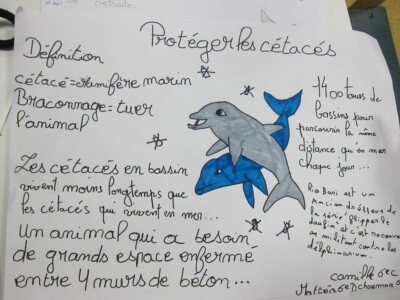 Protéger les cétacés
Définition
cétacé = mamifère marin
Braconnage = tuer
l'animal
Les cétacés en bassin
vivent moins longtemps que
les cétacés qui vivent en mer...
Un animal qui a besoin
de grands espace enfermé
entre 4 murs de béton...
1400 tours de
bassins pour
parcourir la même
distance qu'en mer
chaque jour...
Ric Bari est un
Ancien dresseur de
la série flipper le
dauphin et c'est
un militant contre les
delphinarium.
camille 6eC
Mattéo 6e